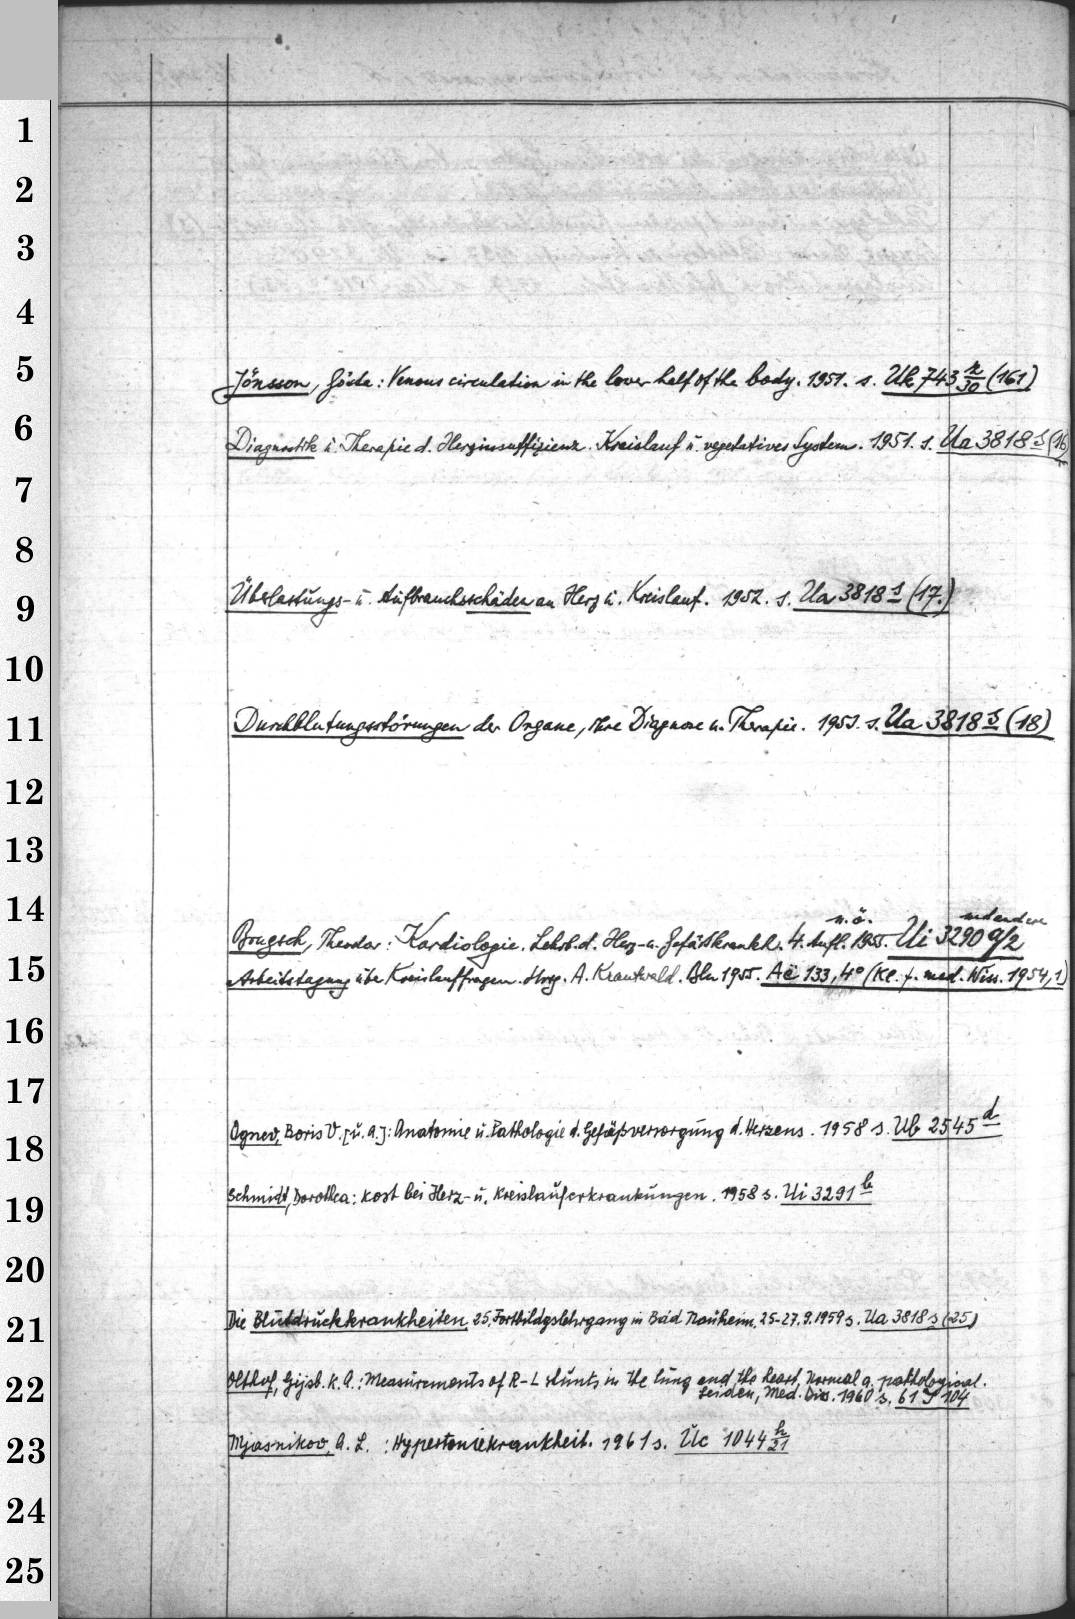 1
2
3
4
5
Jönsson, Gösta: Venous circulation in the lower half of the body. 1951. s. Uk 743 k/30 (161)
6
Diagnostik u. Therapie d. Herzinsuffizienz. Kreislauf u. vegetatives System. 1951. s. Ua 3818 s (16
7
8
9
Überlastungs- u. Aufbrauchsschäden an Herz u. Kreislauf. 1952. s. Ua 3818 s (17.)
10
11
Durchblutungsstörungen der Organe, ihre Diagnose u. Therapie. 1953. s. Ua 3818 s (18)
12
13
14
u. ö.
Brugsch, Theodor: Kardiologie. Lehrb. d. Herz- u. Gefäßkrankh. 4. Aufl. 1955. Ui 3290 g/2
15
Arbeitstagung über Kreislauffragen. Hrsg. A. Krautwald. Bln 1955. Aë 133, 4° (Kl. f. med. Wiss. 1954, 1)
16
17
18
Ognev, Boris V. [u. a.]: Anatomie u. Pathologie d. Gefäßversorgung d. Herzens. 1958 s. Ub 2545 d
19
Schmidt, Dorothea: Kost bei Herz- u. Kreislauferkrankungen. 1958 s. Ui 3291 b
20
21
Die Blutdruckkrankheiten. 25. Fortbildgslehrgang in Bad Nauheim. 25-27. 9. 1959 s. Ua 3818 s (25)
22
Olthof, Gijsb. K. A.: Measurements of R-L shunts in the lung and the heart, Normal a. pathological.
Leiden, Med. Diss. 1960 s. 61 J 104
23
Mjasnikov, A. L.: Hypertoniekrankheit. 1961 s. Uc 1044 h/21
24
25